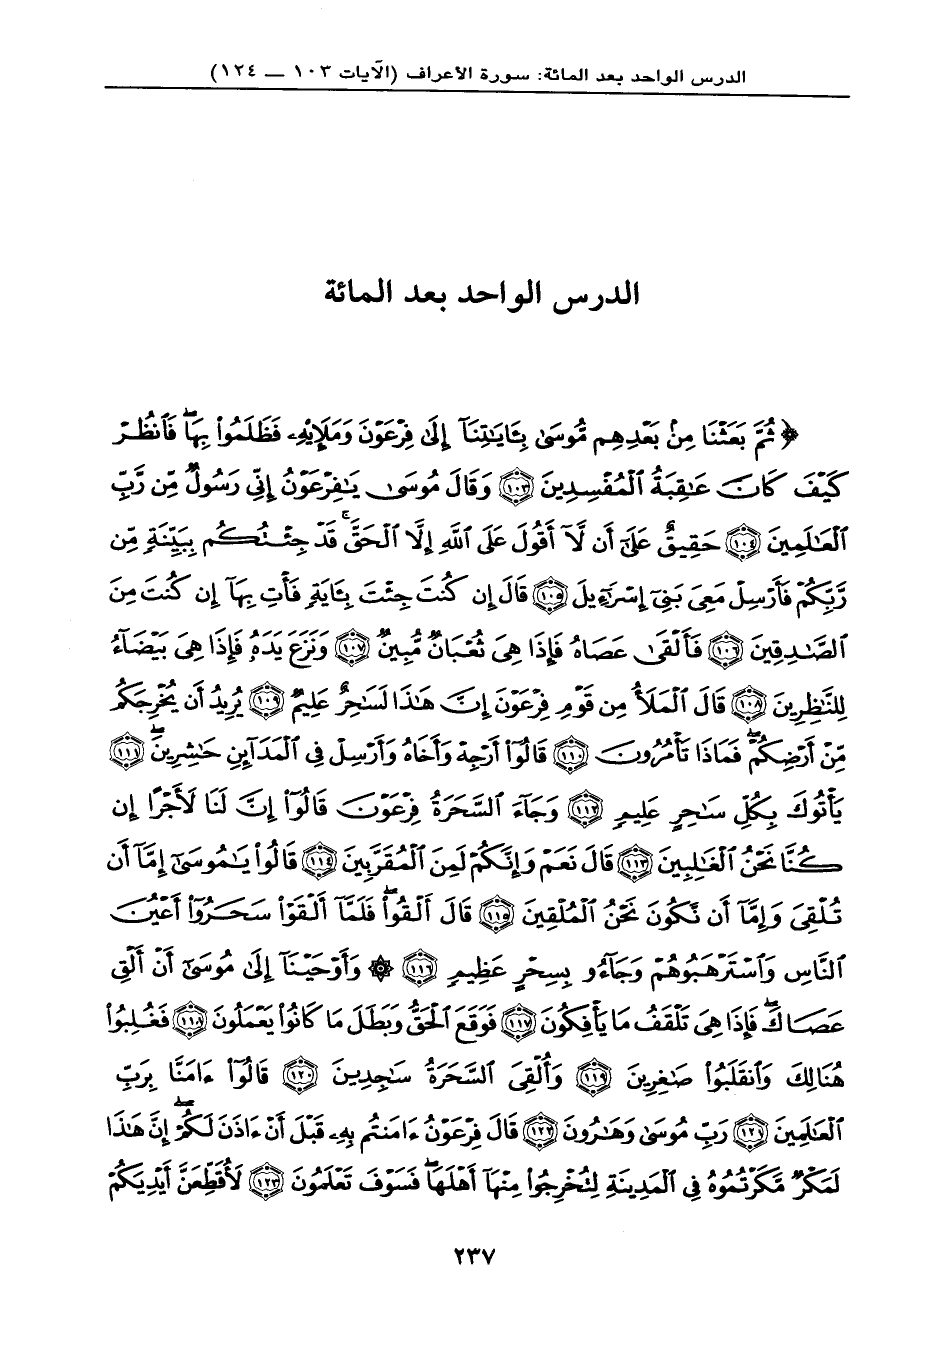 الدرس الواحد بعد المائة: سورة الأعراف (الآيات ١٠٣ — ١٢٤)
الدرس الواحد بعد المائة
﴿ ثُمَّ بَعَثْنَا مِنۢ بَعْدِهِم مُّوسَىٰ بِـَٔايَـٰتِنَآ إِلَىٰ فِرْعَوْنَ وَمَلَإِيْهِۦ فَظَلَمُوا۟ بِهَا ۖ فَٱنظُرْ
كَيْفَ كَانَ عَـٰقِبَةُ ٱلْمُفْسِدِينَ ﴿١٠٣﴾ وَقَالَ مُوسَىٰ يَـٰفِرْعَوْنُ إِنِّى رَسُولٌ مِّن رَّبِّ
ٱلْعَـٰلَمِينَ ﴿١٠٤﴾ حَقِيقٌ عَلَىٰٓ أَن لَّآ أَقُولَ عَلَى ٱللَّهِ إِلَّا ٱلْحَقَّ ۚ قَدْ جِئْتُكُم بِبَيِّنَةٍ مِّن
رَّبِّكُمْ فَأَرْسِلْ مَعِىَ بَنِىٓ إِسْرَٰٓءِيلَ ﴿١٠٥﴾ قَالَ إِن كُنتَ جِئْتَ بِـَٔايَةٍ فَأْتِ بِهَآ إِن كُنتَ مِنَ
ٱلصَّـٰدِقِينَ ﴿١٠٦﴾ فَأَلْقَىٰ عَصَاهُ فَإِذَا هِىَ ثُعْبَانٌ مُّبِينٌ ﴿١٠٧﴾ وَنَزَعَ يَدَهُۥ فَإِذَا هِىَ بَيْضَآءُ
لِلنَّـٰظِرِينَ ﴿١٠٨﴾ قَالَ ٱلْمَلَأُ مِن قَوْمِ فِرْعَوْنَ إِنَّ هَـٰذَا لَسَـٰحِرٌ عَلِيمٌ ﴿١٠٩﴾ يُرِيدُ أَن يُخْرِجَكُم
مِّنْ أَرْضِكُمْ ۖ فَمَاذَا تَأْمُرُونَ ﴿١١٠﴾ قَالُوٓا۟ أَرْجِهْ وَأَخَاهُ وَأَرْسِلْ فِى ٱلْمَدَآئِنِ حَـٰشِرِينَ ﴿١١١﴾
يَأْتُوكَ بِكُلِّ سَـٰحِرٍ عَلِيمٍ ﴿١١٢﴾ وَجَآءَ ٱلسَّحَرَةُ فِرْعَوْنَ قَالُوٓا۟ إِنَّ لَنَا لَأَجْرًا إِن
كُنَّا نَحْنُ ٱلْغَـٰلِبِينَ ﴿١١٣﴾ قَالَ نَعَمْ وَإِنَّكُمْ لَمِنَ ٱلْمُقَرَّبِينَ ﴿١١٤﴾ قَالُوا۟ يَـٰمُوسَىٰٓ إِمَّآ أَن
تُلْقِىَ وَإِمَّآ أَن نَّكُونَ نَحْنُ ٱلْمُلْقِينَ ﴿١١٥﴾ قَالَ أَلْقُوا۟ ۖ فَلَمَّآ أَلْقَوْا۟ سَحَرُوٓا۟ أَعْيُنَ
ٱلنَّاسِ وَٱسْتَرْهَبُوهُمْ وَجَآءُو بِسِحْرٍ عَظِيمٍ ﴿١١٦﴾ ۞ وَأَوْحَيْنَآ إِلَىٰ مُوسَىٰٓ أَنْ أَلْقِ
عَصَاكَ ۖ فَإِذَا هِىَ تَلْقَفُ مَا يَأْفِكُونَ ﴿١١٧﴾ فَوَقَعَ ٱلْحَقُّ وَبَطَلَ مَا كَانُوا۟ يَعْمَلُونَ ﴿١١٨﴾ فَغُلِبُوا۟
هُنَالِكَ وَٱنقَلَبُوا۟ صَـٰغِرِينَ ﴿١١٩﴾ وَأُلْقِىَ ٱلسَّحَرَةُ سَـٰجِدِينَ ﴿١٢٠﴾ قَالُوٓا۟ ءَامَنَّا بِرَبِّ
ٱلْعَـٰلَمِينَ ﴿١٢١﴾ رَبِّ مُوسَىٰ وَهَـٰرُونَ ﴿١٢٢﴾ قَالَ فِرْعَوْنُ ءَامَنتُم بِهِۦ قَبْلَ أَنْ ءَاذَنَ لَكُمْ ۖ إِنَّ هَـٰذَا
لَمَكْرٌ مَّكَرْتُمُوهُ فِى ٱلْمَدِينَةِ لِتُخْرِجُوا۟ مِنْهَآ أَهْلَهَا ۖ فَسَوْفَ تَعْلَمُونَ ﴿١٢٣﴾ لَأُقَطِّعَنَّ أَيْدِيَكُمْ
٢٣٧